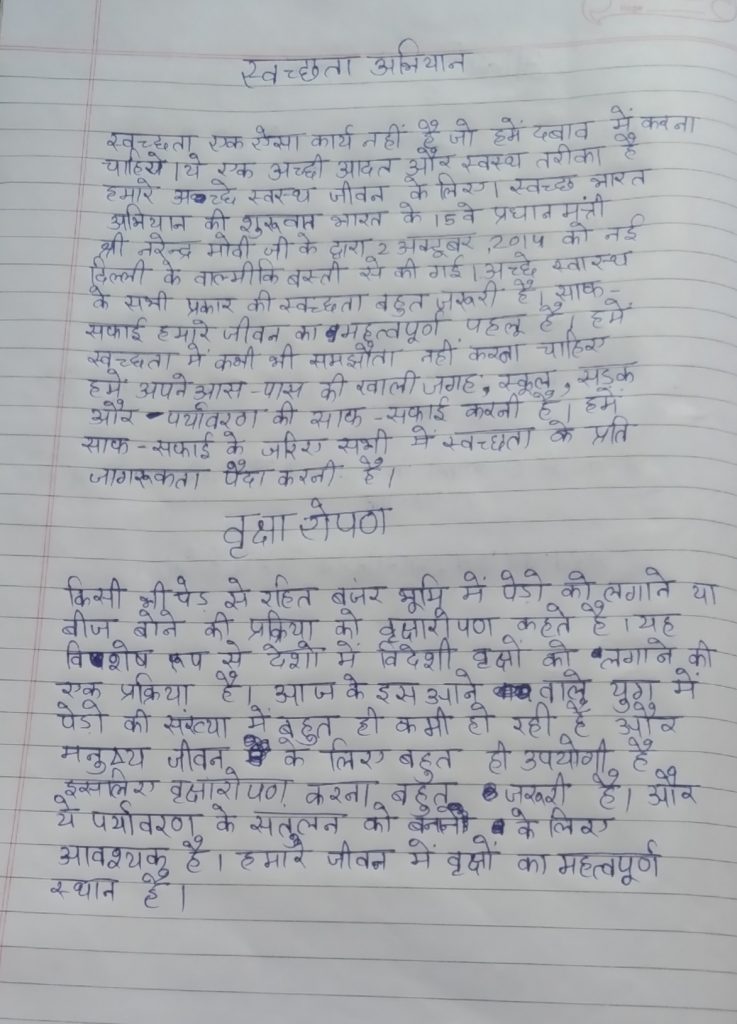 स्वच्छता अभियान
स्वच्छता एक ऐसा कार्य नहीं है जो हमें दबाव में करना
चाहिये। ये एक अच्छी आदत और स्वस्थ तरीका है
हमारे अच्छे स्वस्थ जीवन के लिए। स्वच्छ भारत
अभियान की शुरूवात भारत के 15वे प्रधानमंत्री
श्री नरेन्द्र मोदी जी के द्वारा 2 अक्टूबर, 2014 को नई
दिल्ली के वाल्मीकि बस्ती से की गई। अच्छे स्वास्थ
के सभी प्रकार की स्वच्छता बहुत ज़रूरी है। साफ-
सफाई हमारे जीवन का महत्वपूर्ण पहलू है। हमें
स्वच्छता में कभी भी समझौता नहीं करना चाहिए
हमें अपने आस-पास की खाली जगह, स्कूल, सड़क
और पर्यावरण की साफ-सफाई करनी है। हमें
साफ-सफाई के जरिए सभी में स्वच्छता के प्रति
जागरूकता पैदा करनी है।
वृक्षा रोपण
किसी भी पेड़ से रहित बंजर भूमि में पेड़ो को लगाने या
बीज बोने की प्रक्रिया को वृक्षारोपण कहते है। यह
विशेष रूप से देशो में विदेशी वृक्षों को लगाने की
एक प्रक्रिया है। आज के इस आने वाले युग में
पेड़ो की संख्या में बहुत ही कमी हो रही है और
मनुष्य जीवन के लिए बहुत ही उपयोगी है
इसलिए वृक्षारोपण करना बहुत जरूरी है। और
ये पर्यावरण के संतुलन को के लिए
आवश्यक है। हमारे जीवन में वृक्षों का महत्वपूर्ण
स्थान है।